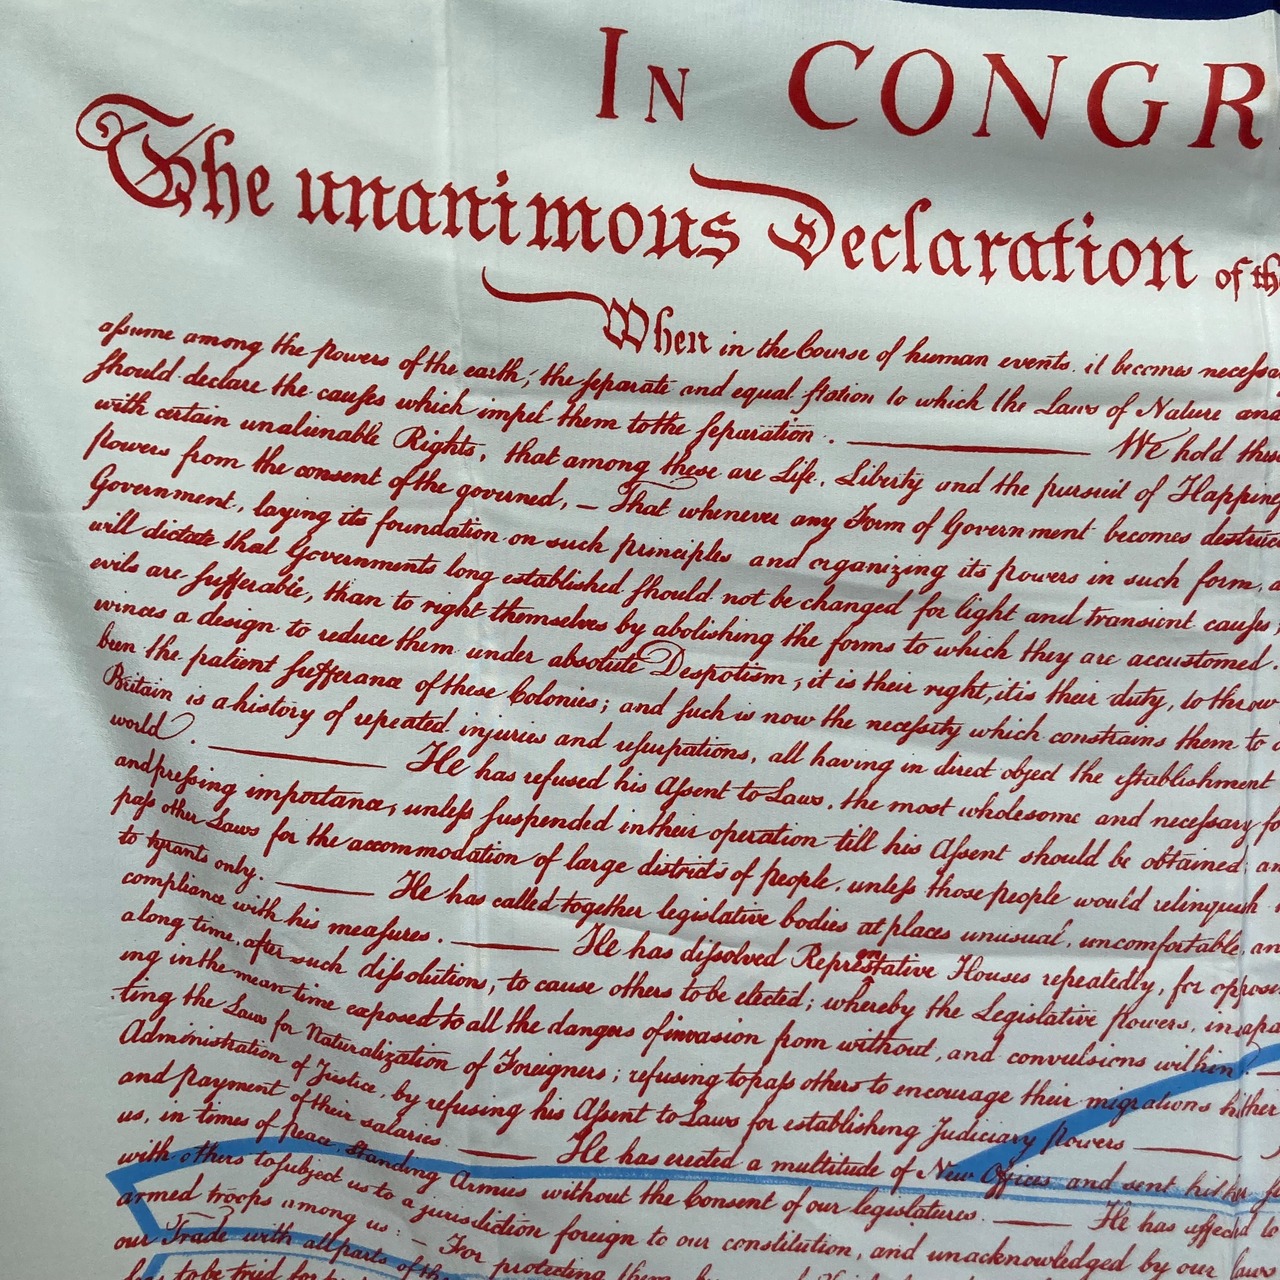 IN CONGR
The unanimous Declaration of the
When in the Course of human events, it becomes necessa
assume among the powers of the earth, the separate and equal station to which the Laws of Nature and
should declare the causes which impel them to the separation. We hold these
with certain unalienable Rights, that among these are Life, Liberty and the pursuit of Happiness
powers from the consent of the governed, — That whenever any Form of Government becomes destruc
Government, laying its foundation on such principles and organizing its powers in such form,
will dictate that Governments long established should not be changed for light and transient causes
evils are sufferable, than to right themselves by abolishing the forms to which they are accustomed.
evinces a design to reduce them under absolute Despotism, it is their right, it is their duty, to throw
been the patient sufferance of these Colonies; and such is now the necessity which constrains them to
Britain is a history of repeated injuries and usurpations, all having in direct object the establishment
world. He has refused his Assent to Laws, the most wholesome and necessary fo
and pressing importance, unless suspended in their operation till his Assent should be obtained; an
pass other Laws for the accommodation of large districts of people, unless those people would relinquish
to tyrants only. He has called together legislative bodies at places unusual, uncomfortable, an
compliance with his measures. He has dissolved Representative Houses repeatedly, for oppos
along time, after such dissolutions, to cause others to be elected; whereby the Legislative powers, incapa
ing in the mean time exposed to all the dangers of invasion from without, and convulsions within.
ting the Laws for Naturalization of Foreigners; refusing to pass others to encourage their migrations hither
Administration of Justice, by refusing his Assent to Laws for establishing Judiciary powers
and payment of their salaries. He has erected a multitude of New Offices, and sent hither
us, in times of peace, Standing Armies without the Consent of our legislatures. He has affected to
with others to subject us to a jurisdiction foreign to our constitution, and unacknowledged by our laws
armed troops among us: — For protecting them
our Trade with all parts of the
to be tried for